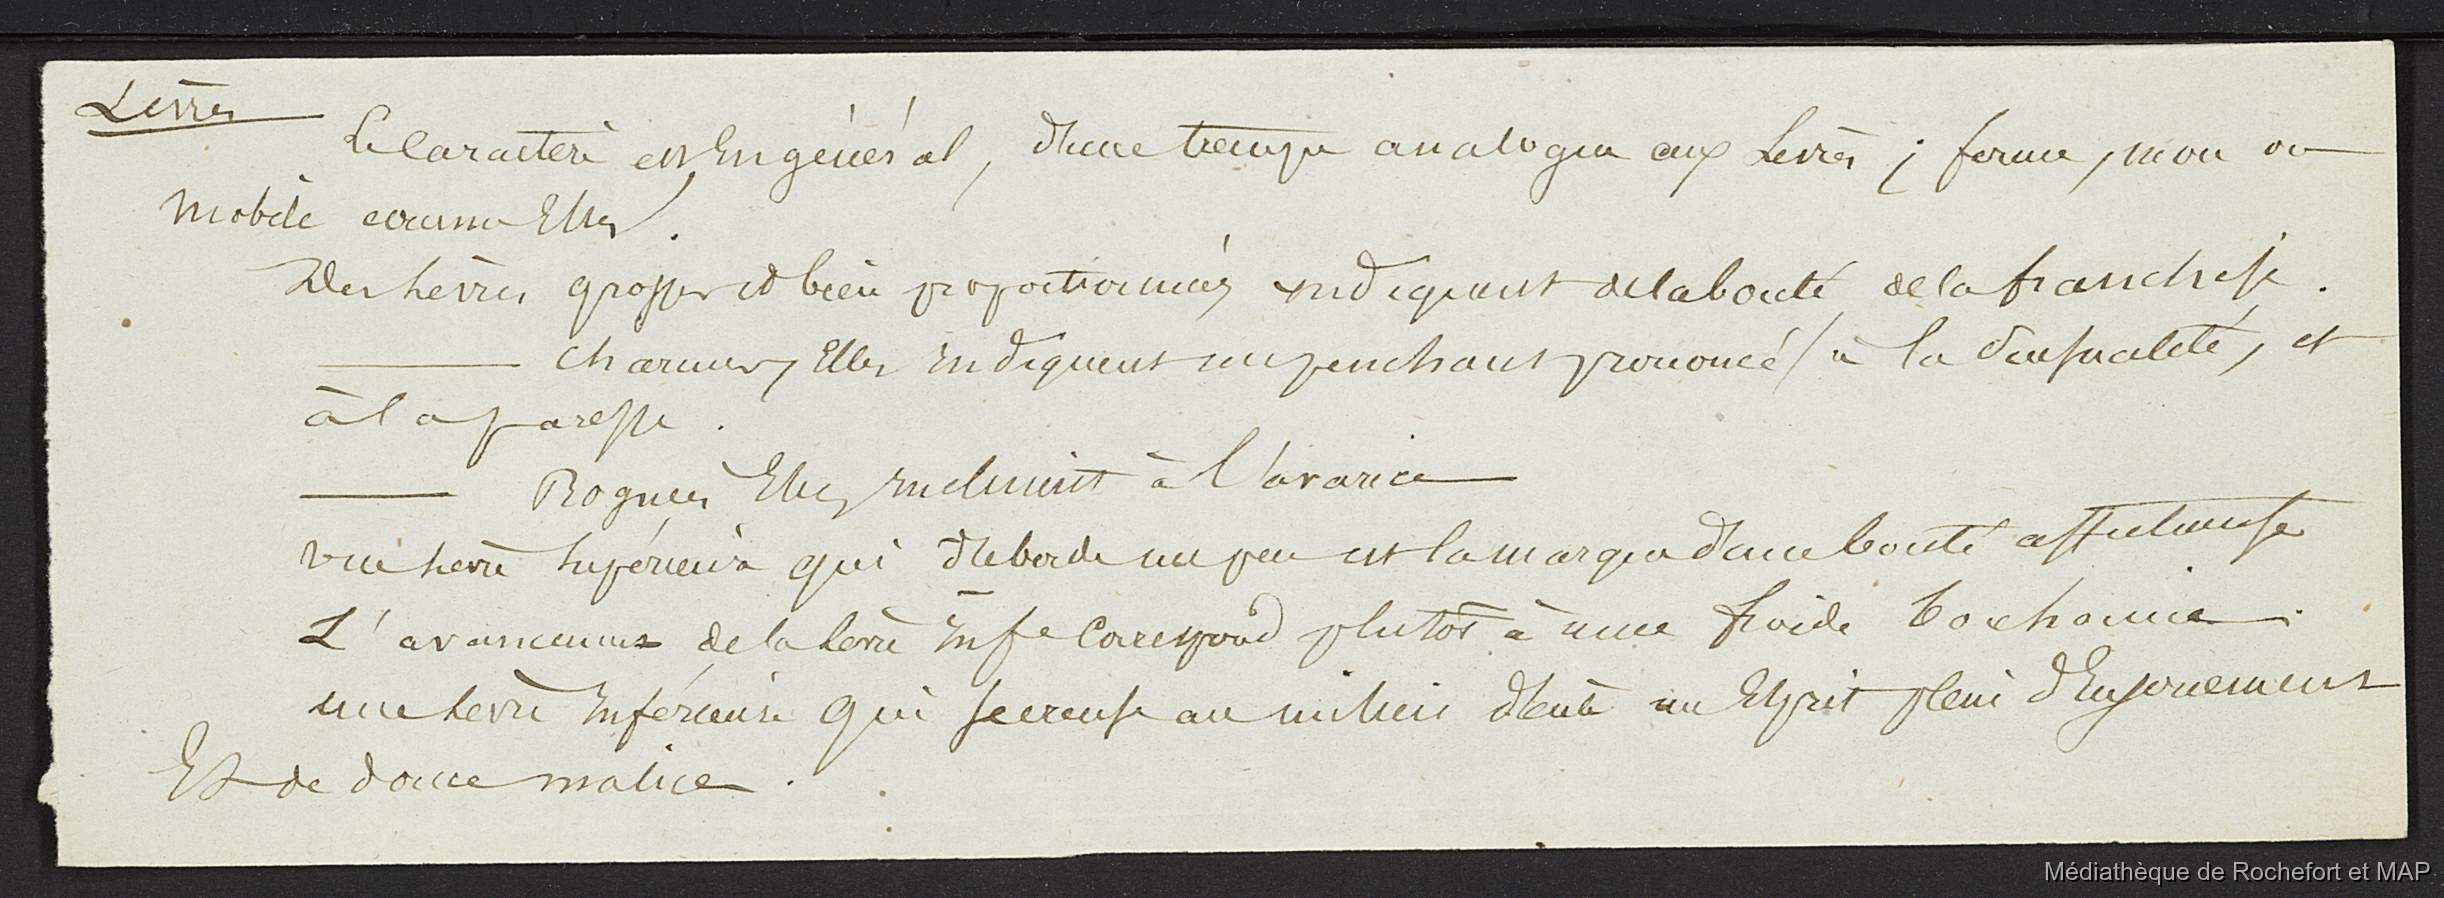 Levres
Le Caractere est En général, d'une trempe analogue aux Levres ; ferme, mou ou
Mobile comme Elles.
Des Levres grosses et bien proportionnées indiquent de la bonté, de la franchise.
——— Charnues, Elles indiquent un penchant prononcé à la sensualité, et
à la paresse.
——— Rognées Elles inclinent à l'avarice
Une levre Inférieure qui déborde un peu est la marque d'une bonté affectueuse
L'avancement de la levre Infe correspond plutôt à une froide bonhomie.
une levre Inférieure qui se creuse au milieu dénote un Esprit plein d'Enjouement
Et de douce malice.
Médiathèque de Rochefort et MAP